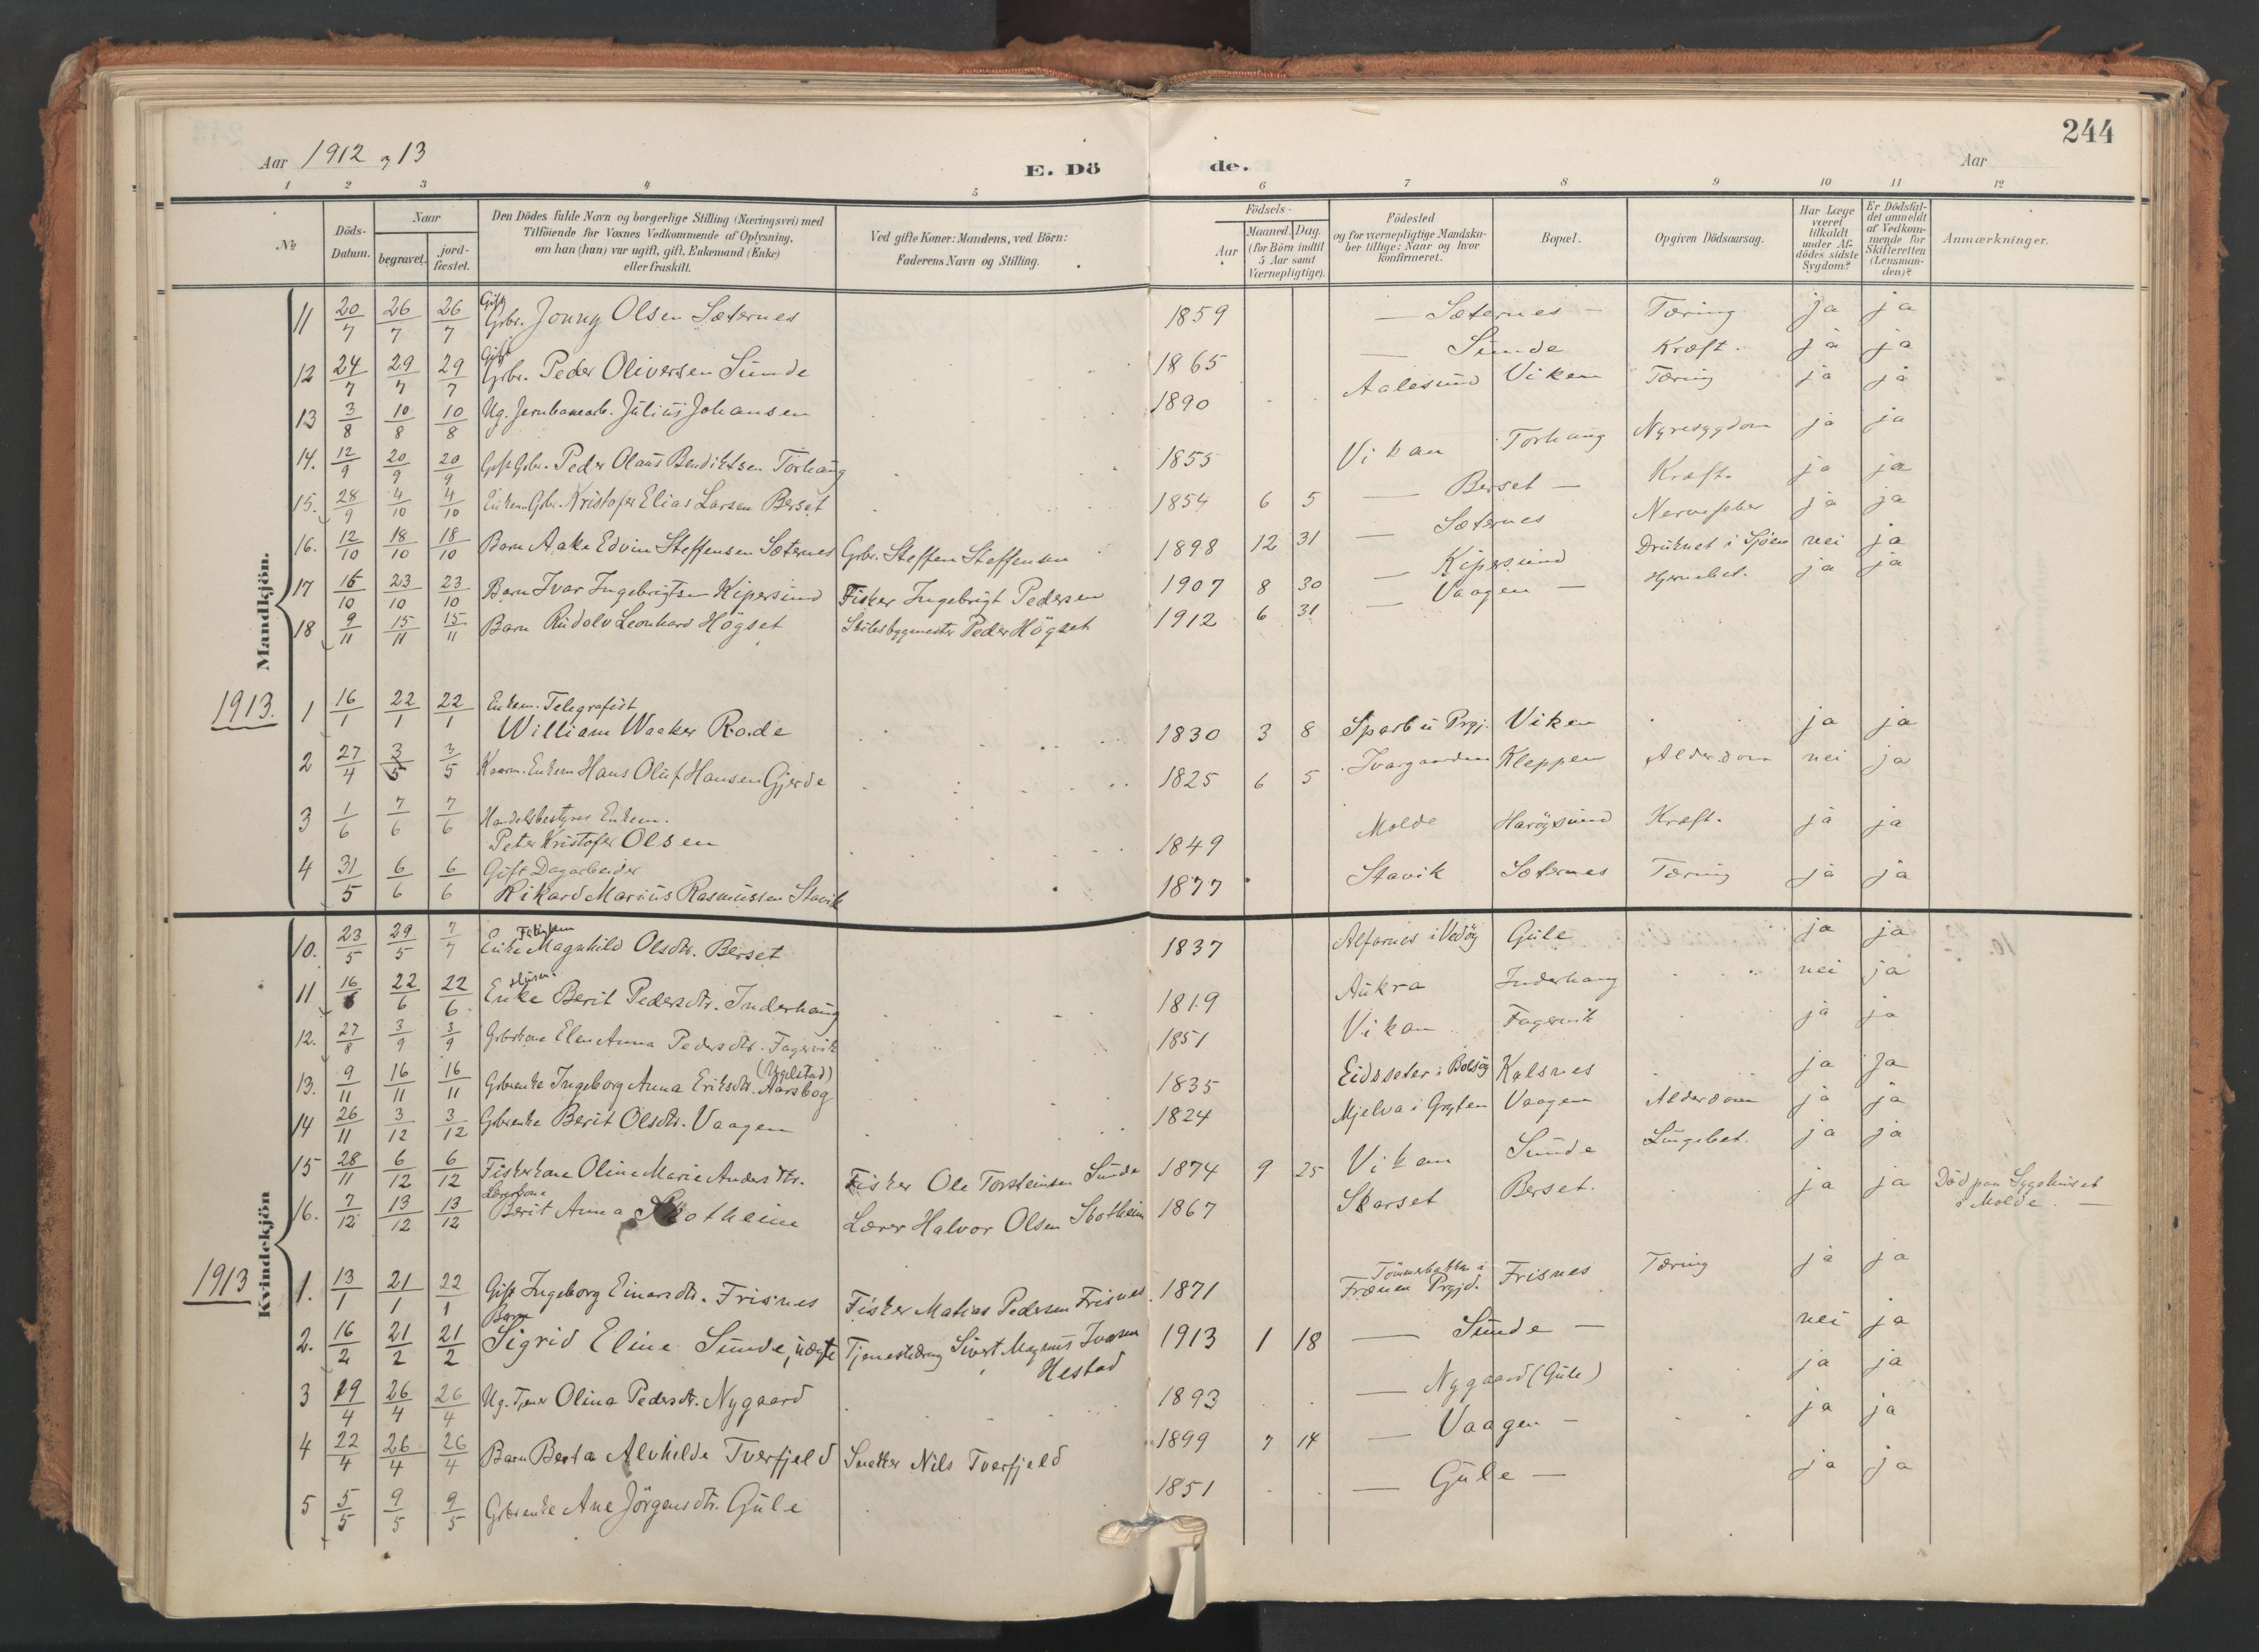 244
Aar 1912 og 13
E. Dö de.
Aar
1 2 3 4 5 6 7 8 9 10 11 12
№
Döds-Datum.
Naar
begravet.
jord-fæstet.
Den Dödes fulde Navn og borgerlige Stilling (Næringsvei) med
Tilföiende for Voxnes Vedkommende af Oplysning,
om han (hun) var ugift, gift, Enkemand (Enke)
eller fraskilt.
Ved gifte Koner: Mandens, ved Börn:
Faderens Navn og Stilling.
Födsels-
Aar
Maaned. Dag.
(for Börn indtil
5 Aar samt
Værnepligtige).
Födested
og for værnepligtige Mandska-
ber tillige: Naar og hvor
konfirmeret.
Bopæl.
Opgiven Dödsaarsag.
Har Læge
været
tilkaldt
under Af-
dödes sidste
Sygdom?
Er Dödsfal-
det anmeldt
af Vedkom-
mende for
Skifteretten
(Lensman-
den)?
Anmærkninger.
Mandkjön.
11 20/7 26/7 26/7 Gift Gbr. Jonny Olsen Sæternes 1859 — Sæternes — Tæring ja ja
12 24/7 29/7 29/7 Gift Gbr. Peder Oliversen Sunde 1865 — Sunde Kræft. ja ja
13 3/8 10/8 10/8 Ug. Jernbanearb. Julius Johansen 1890 Aalesund Viken Tæring ja ja
14. 12/9 20/9 20/9 Gift Gbr. Peder Olaus Bendiktsen Torhaug 1855 Vikan Torhaug Nyresygdom ja ja
15. 28/9 4/10 4/10 Enkem. Gbr. Kristofer Elias Larsen Berset 1854 6 5 — Berset — Kræft. ja ja
16. 12/10 18/10 18/10 Barn Aake Edvin Steffensen Sæternes Gbr. Steffen Steffensen 1898 12 31 — Sæternes Nervefeber ja ja
17 16/10 23/10 23/10 Barn Ivar Ingebrigtsen Kipersund Fisker Ingebrigt Pedersen 1907 8 30 — Kipersund Druknet i Sjöen nei ja
18 9/11 15/11 15/11 Barn Rudolv Leonhard Högset Skibsbygmester Peder Högset 1912 6 31 — Vaagen — Hjernebet. ja ja
1913.
1 16/1 22/1 22/1 Enkem. Telegrafist
William Waaker Rode 1830 3 8 Sparbu Prgj. Viken ja ja
2 27/4 3/5 3/5 Kaarm. Enkem Hans Oluf Hansen Gjerde 1825 6 5 Ivargaarden Kleppen Alderdom nei ja
3 1/6 7/6 7/6 Handelsbestyrer Enkem.
Peter Kristofer Olsen 1849 Molde Haröysund Kræft. ja ja
4 31/5 6/6 6/6 Gift Dagarbeider
Rikard Marius Rasmussen Stavik 1877 Stavik Sæternes Tæring ja ja
Kvindekjön
10. 23/5 29/5 7/7 Fattiglem
Enke Magnhild Olsdtr. Berset 1837 Alfarnes i Vedöy Gule ja ja
11 16/6 22/6 22/6 Husm.
Enke Berit Pedersdtr. Inderhaug 1819 Aukra Inderhaug nei ja
12. 27/8 3/9 3/9 Gbrkone Elen Anna Pedersdtr. Fagervik 1851 Vikan Fagervik ja ja
13. 9/11 16/11 16/11 Gbrenke Ingeborg Anna Eriksdtr. Aarsbog (Ugelstad) 1835 Eidsseter i Bolsöy Kalsnes ja ja
14 26/11 3/12 3/12 Gbrenke Berit Olsdtr. Vaagen 1824 Mjelva i Grytten Vaagen Alderdom ja ja
15 28/11 6/12 6/12 Fiskerkone Oline Marie Andersdtr. Fisker Ole Torsteinsen Sunde 1874 9 25 Vikan Sunde Lungebet. ja ja
16. 7/12 13/12 13/12 Lærerkone
Berit Anna Skotheim Lærer Halvor Olsen Skotheim 1867 Skarset Berset. ja ja Död paa Sygehuset
i Molde. —
1913
1. 13/1 21/1 22/1 Gift Ingeborg Einarsdtr. Frisnes Fisker Matias Pedersen Frisnes 1871 Frænen Prgjd. Frisnes Tæring ja ja
2. 16/2 21/2 21/2 Barn
Sigrid Eline Sunde, uægte Tjenestedreng Sivert Magnus Ivarsen
Hestad 1913 1 18 — Sunde — nei ja
3 19/4 26/4 26/4 Ug. Tjener Olina Pedersdtr. Nygaard 1893 — Nygaard (Gule) ja ja
4 22/4 26/4 26/4 Barn Berta Alvhilde Tverfjeld Snekker Nils Tverfjeld 1899 7 14 — Vaagen — ja ja
5 5/5 9/5 9/5 Gbrenke Ane Jörgensdtr. Gule 1851 — Gule — ja ja